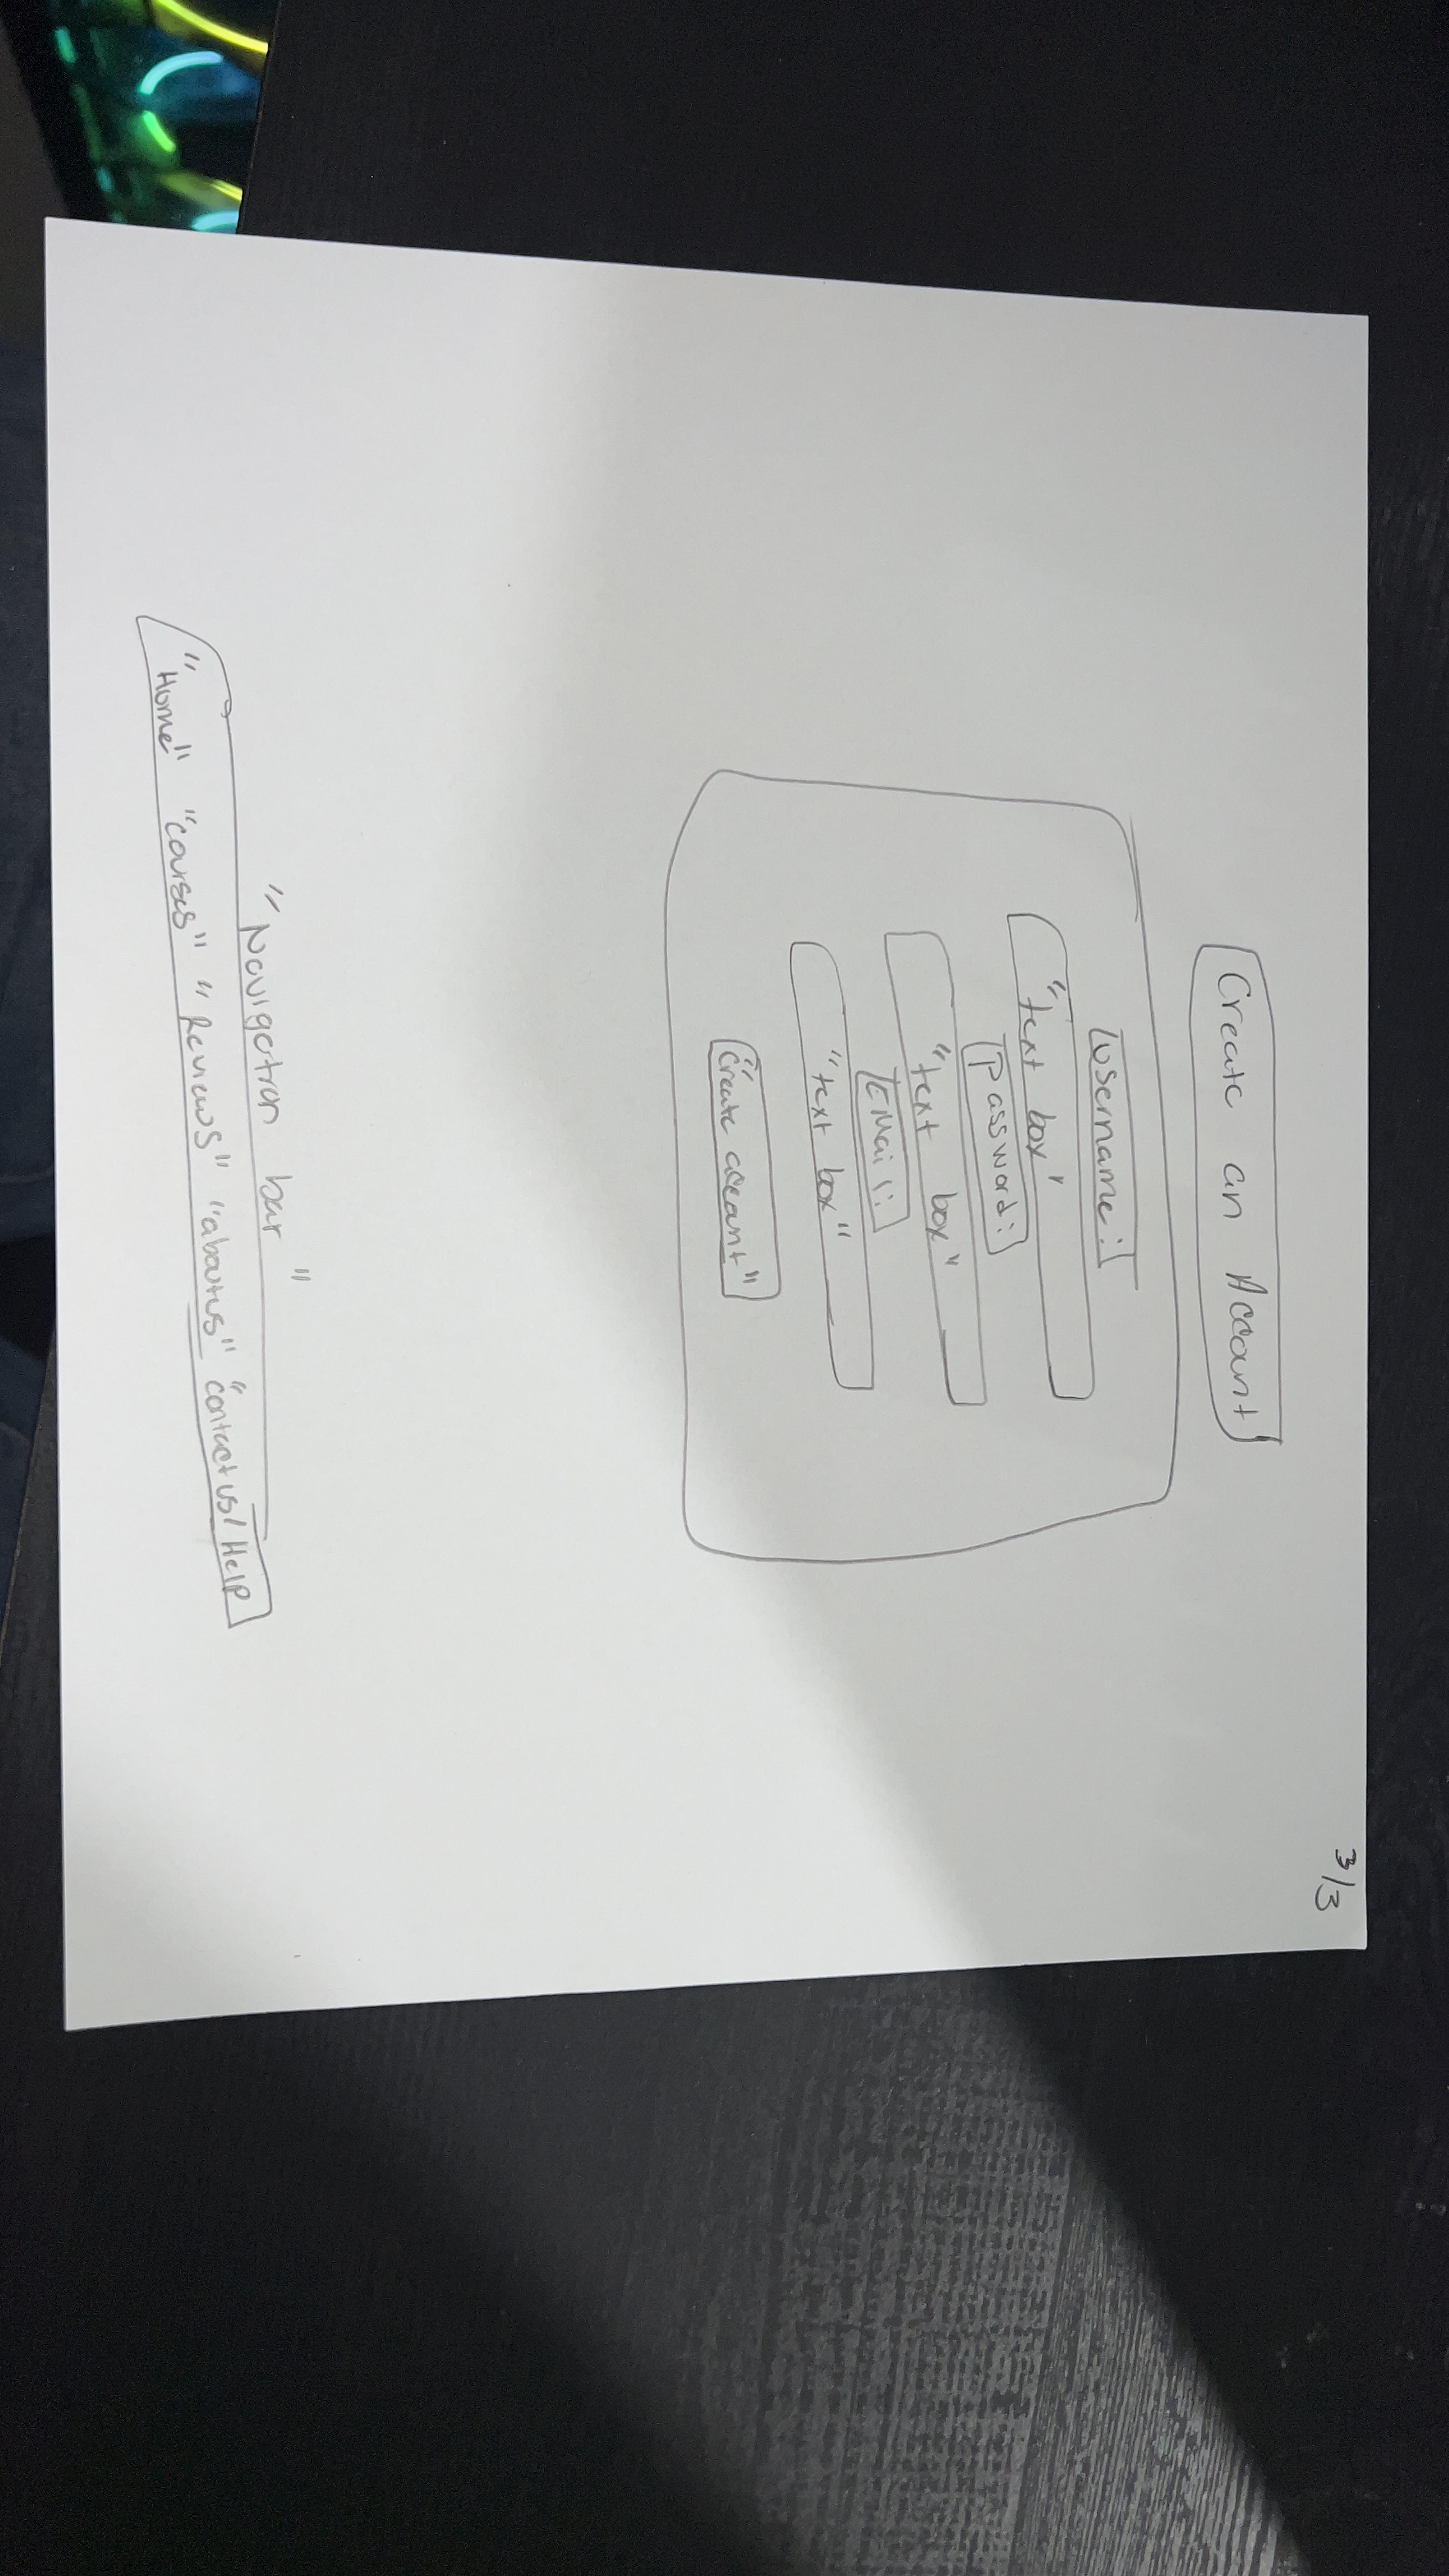 3/3
Create an Account
Username:
"text box"
Password:
"text box"
EMail:
"text box"
"Create account"
"Navigation bar"
"Home" "courses" "Reviews" "about us" "contact us / Help